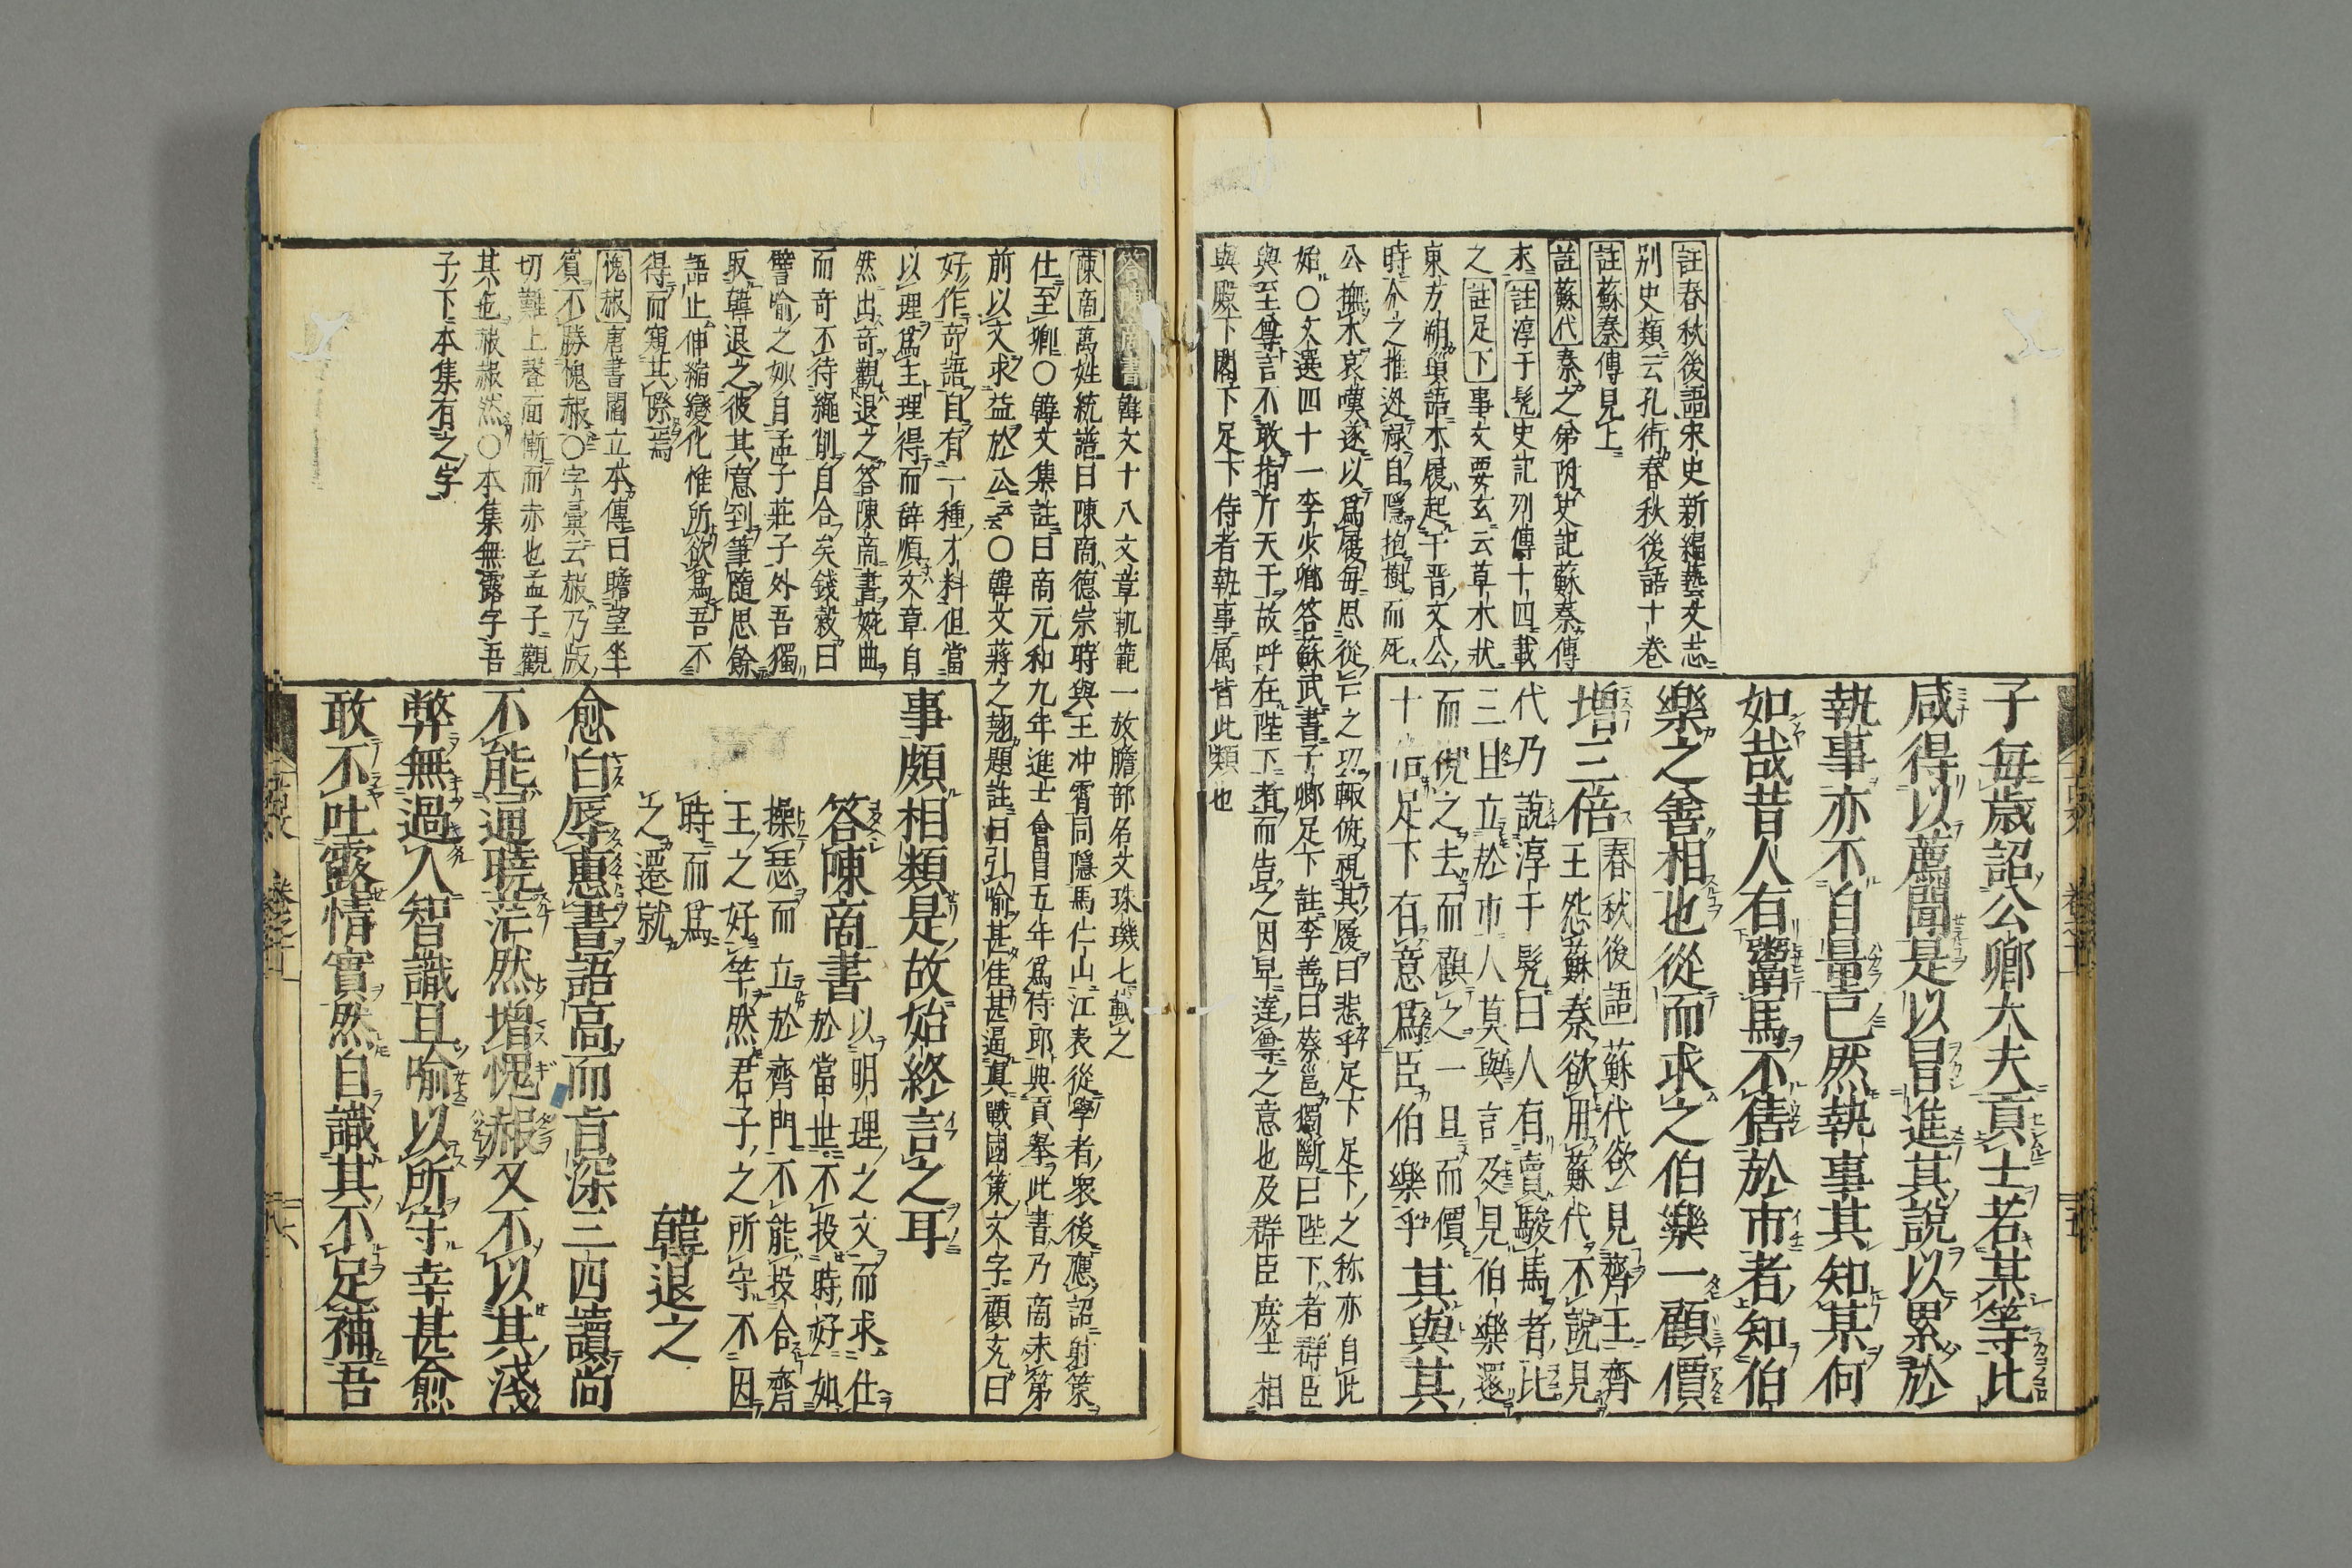 子毎歳詔公卿大夫貢士若某等比
咸得以薦聞是以冒進其說以累於
執事亦不自量已然執事其知某何
如哉昔人有鬻馬不售於市者知伯
樂之善相也從而求之伯樂一顧價
增三倍
春秋後語蘇代欲見齊王齊
王怨蘇秦欲用蘇代不說見
代乃說淳于髡曰人有賣駿馬者比
三旦立於市人莫與言及見伯樂還
而視之去而顧之一旦而價
十倍足下有意爲臣伯樂乎
其與其
註春秋後語宋史新編藝文志
別史類云孔衍春秋後語十卷
註蘇秦傳見上
註蘇代秦之弟附史記蘇秦傳
末註淳于髡史記列傳十四載
之註足下事文要玄云草木狀
東方朔瑣語木履起于晋文公
時介之推逃禄自隱抱樹而死
公撫木哀嘆遂以爲屐毎思從亡之功輙俯視其履曰悲乎足下足下之称亦自此
始〇文選四十一李少卿答蘇武書子卿足下註李善曰蔡邕獨斷曰陛下者群臣
與至尊言不敢指斥天子故呼在陛下者而告之因卑達尊之意也及群臣庶士相
與殿下閣下足下侍者執事属皆此類也
答陳商書韓文十八文章軌範一放膽部名文珠璣七載之
陳商萬姓統譜曰陳商德宗時與王冲霄同隱馬仁山江表從學者衆後應詔射策
仕至卿〇韓文集註曰商元和九年進士會昌五年爲侍郎典貢舉此書乃商未第
前以文求益於公云云〇韓文蔣之翹題註曰引喻甚佳甚逼真戰國策文字顧充曰
好作奇語自有一種才料但當
以理爲主理得而辞順文章自
然出奇觀退之答陳商書婉曲
而奇不待繩削自合矣錢穀曰
譬喻之妙自孟子莊子外吾獨
取韓退之彼其意到筆隨思餘
語止伸縮變化惟所欲爲吾不
得而窺其際焉
愧赧唐書閻立本傳曰瞻望坐
賓不勝愧赧〇字彙云赧乃版
切難上聲面慚而赤也孟子觀
其色赧赧然〇本集無露字吾
子下本集有之字
事頗相類是故始終言之耳
答陳商書
以明理之文而求仕
於當世不投時好如
操瑟而立於齊門不能投合齊
王之好竽然君子之所守不因
時而爲
之遷就
韓退之
愈白辱惠書語高而旨深三四讀尚
不能通曉茫然增愧赧又不以其淺
弊無過人智識且喻以所守幸甚愈
敢不吐露情實然自識其不足補吾